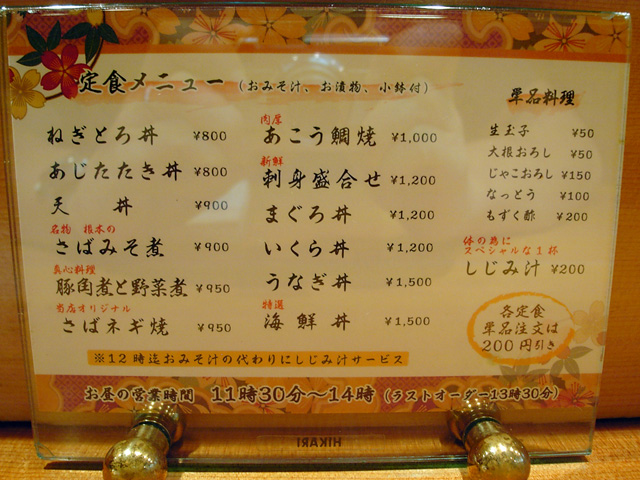 定食メニュー (おみそ汁、お漬物、小鉢付)
ねぎとろ丼 ¥800
あじたたき丼 ¥800
天 丼 ¥900
名物 根本の
さばみそ煮 ¥900
真心料理
豚角煮と野菜煮 ¥950
当店オリジナル
さばネギ焼 ¥950
肉厚
あこう鯛焼 ¥1,000
新鮮
刺身盛合せ ¥1,200
まぐろ丼 ¥1,200
いくら丼 ¥1,200
うなぎ丼 ¥1,500
特選
海鮮丼 ¥1,500
単品料理
生玉子 ¥50
大根おろし ¥50
じゃこおろし ¥150
なっとう ¥100
もずく酢 ¥200
体の為に
スペシャルな1杯
しじみ汁 ¥200
各定食
単品注文は
200円引き
※12時迄おみそ汁の代わりにしじみ汁サービス
お昼の営業時間 11時30分~14時 (ラストオーダー13時30分)
HIKARI